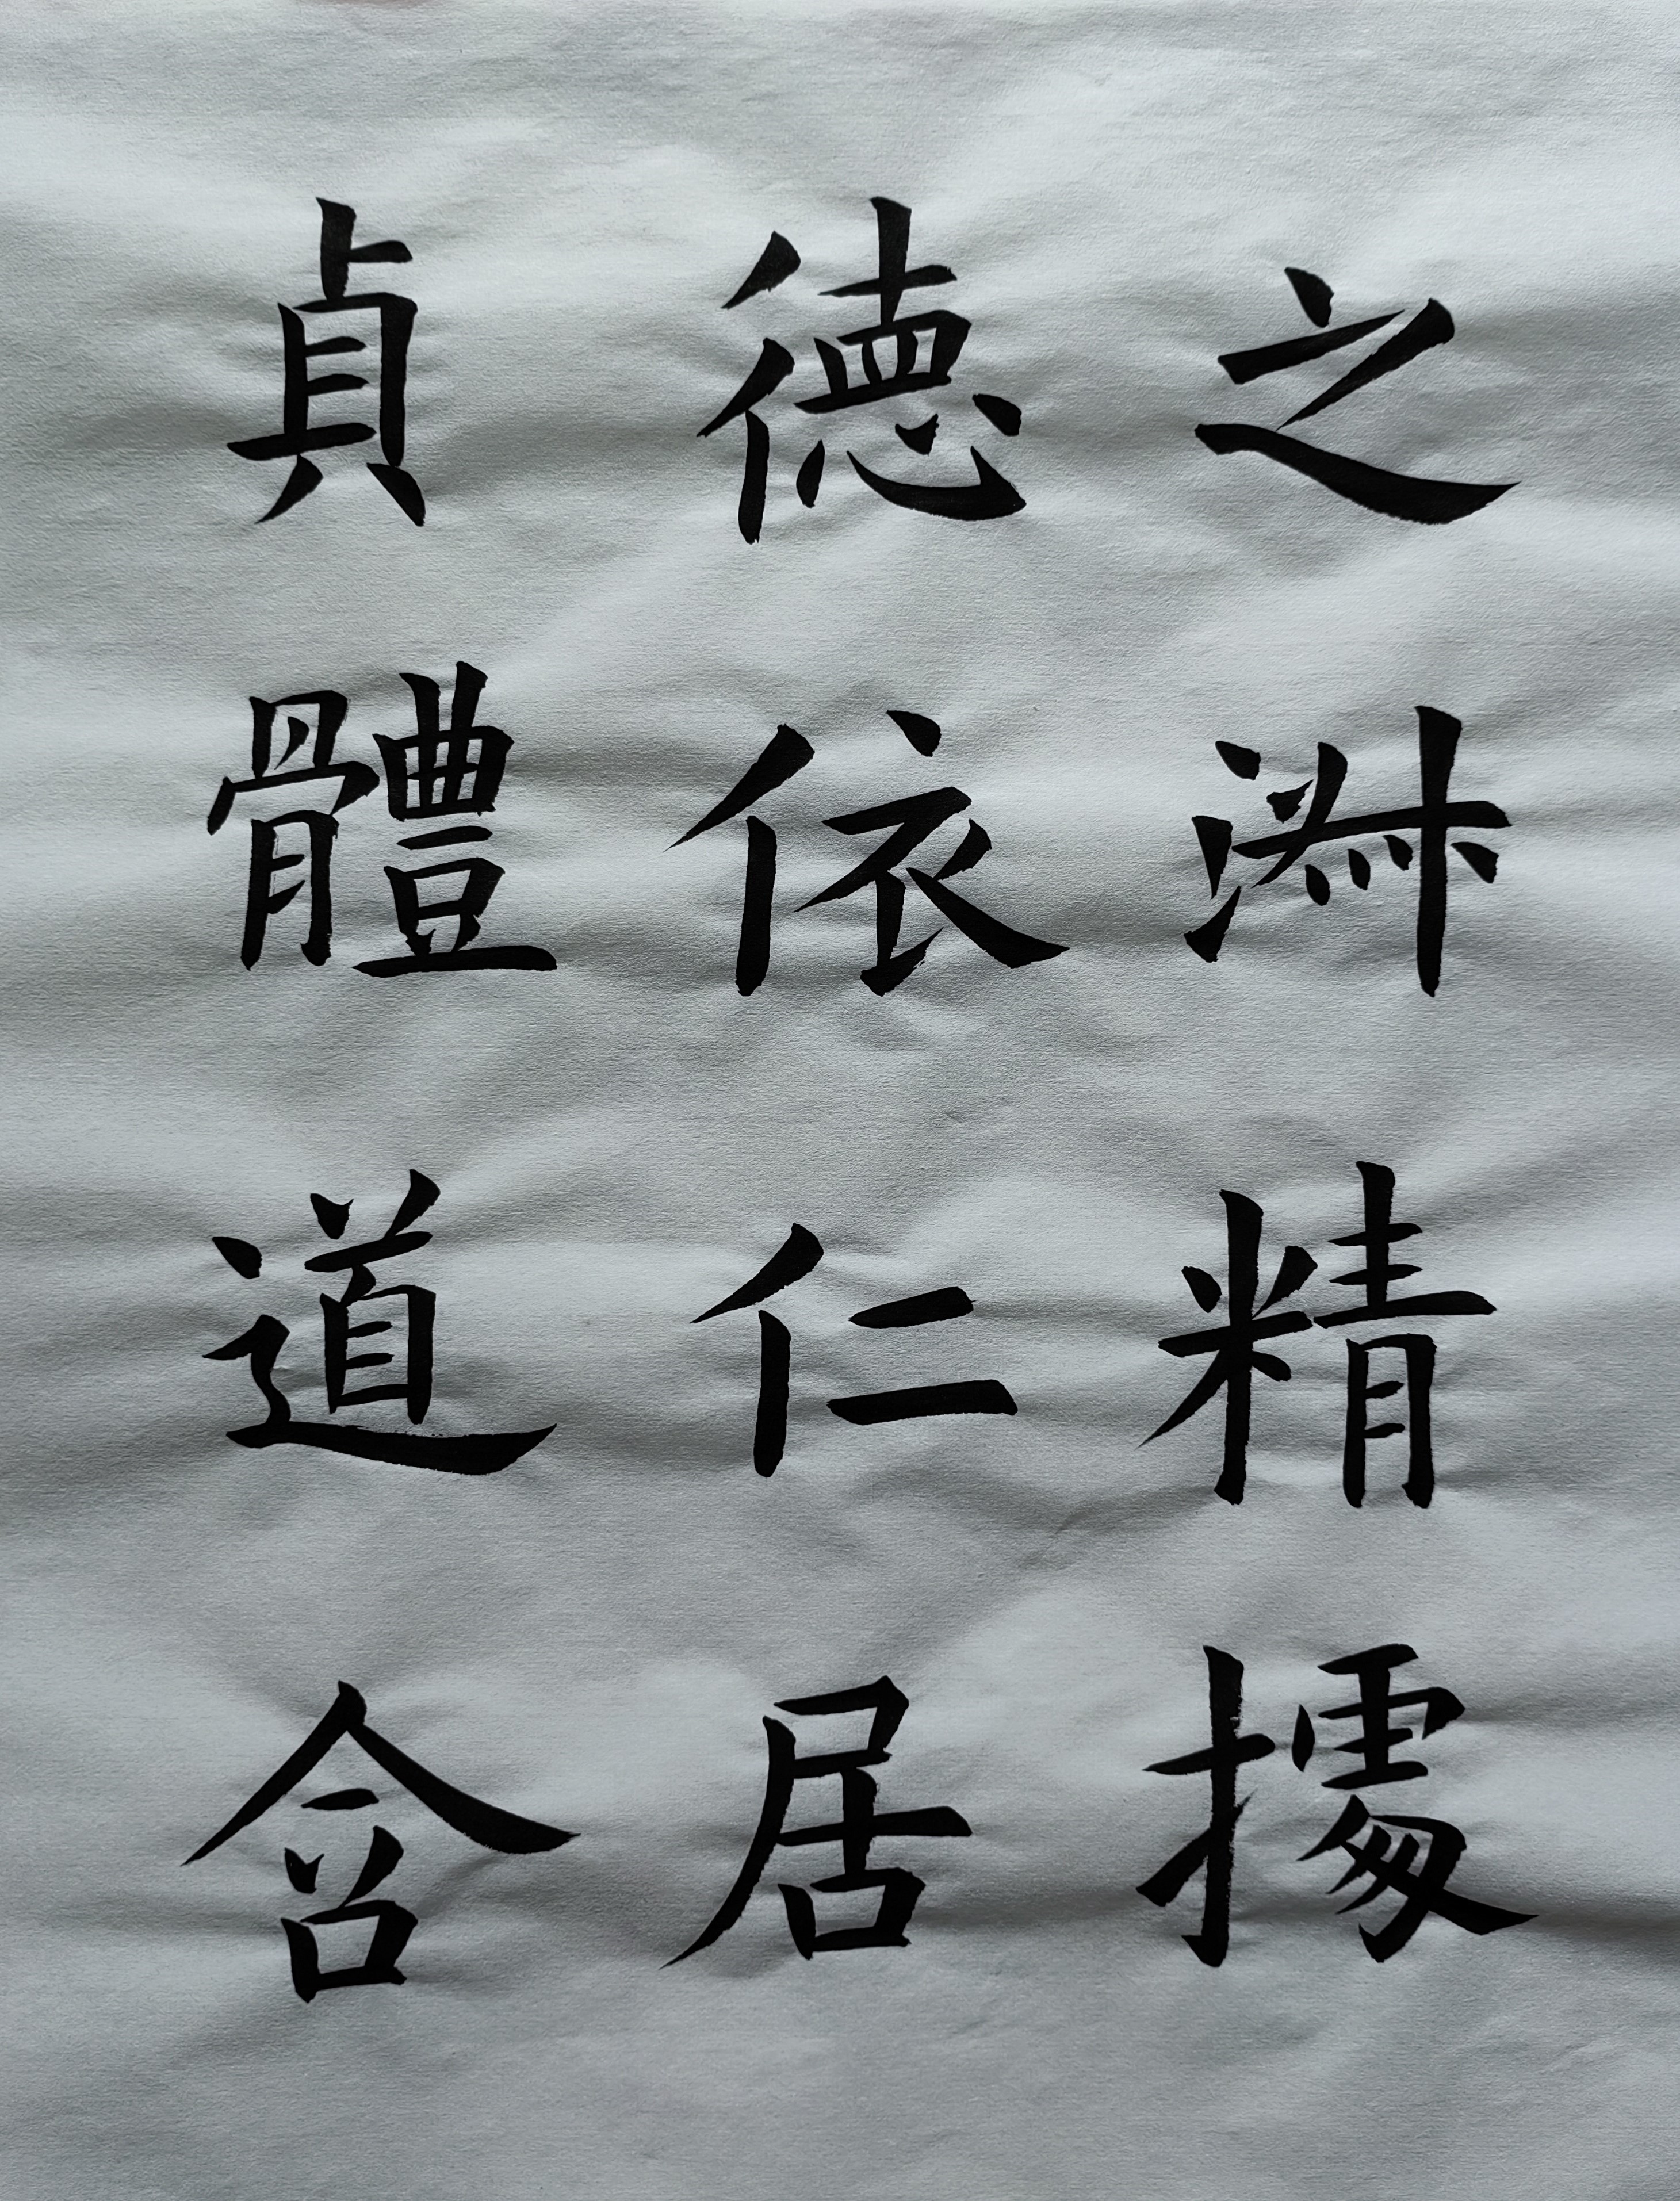 之淑精據
德依仁居
貞體道含